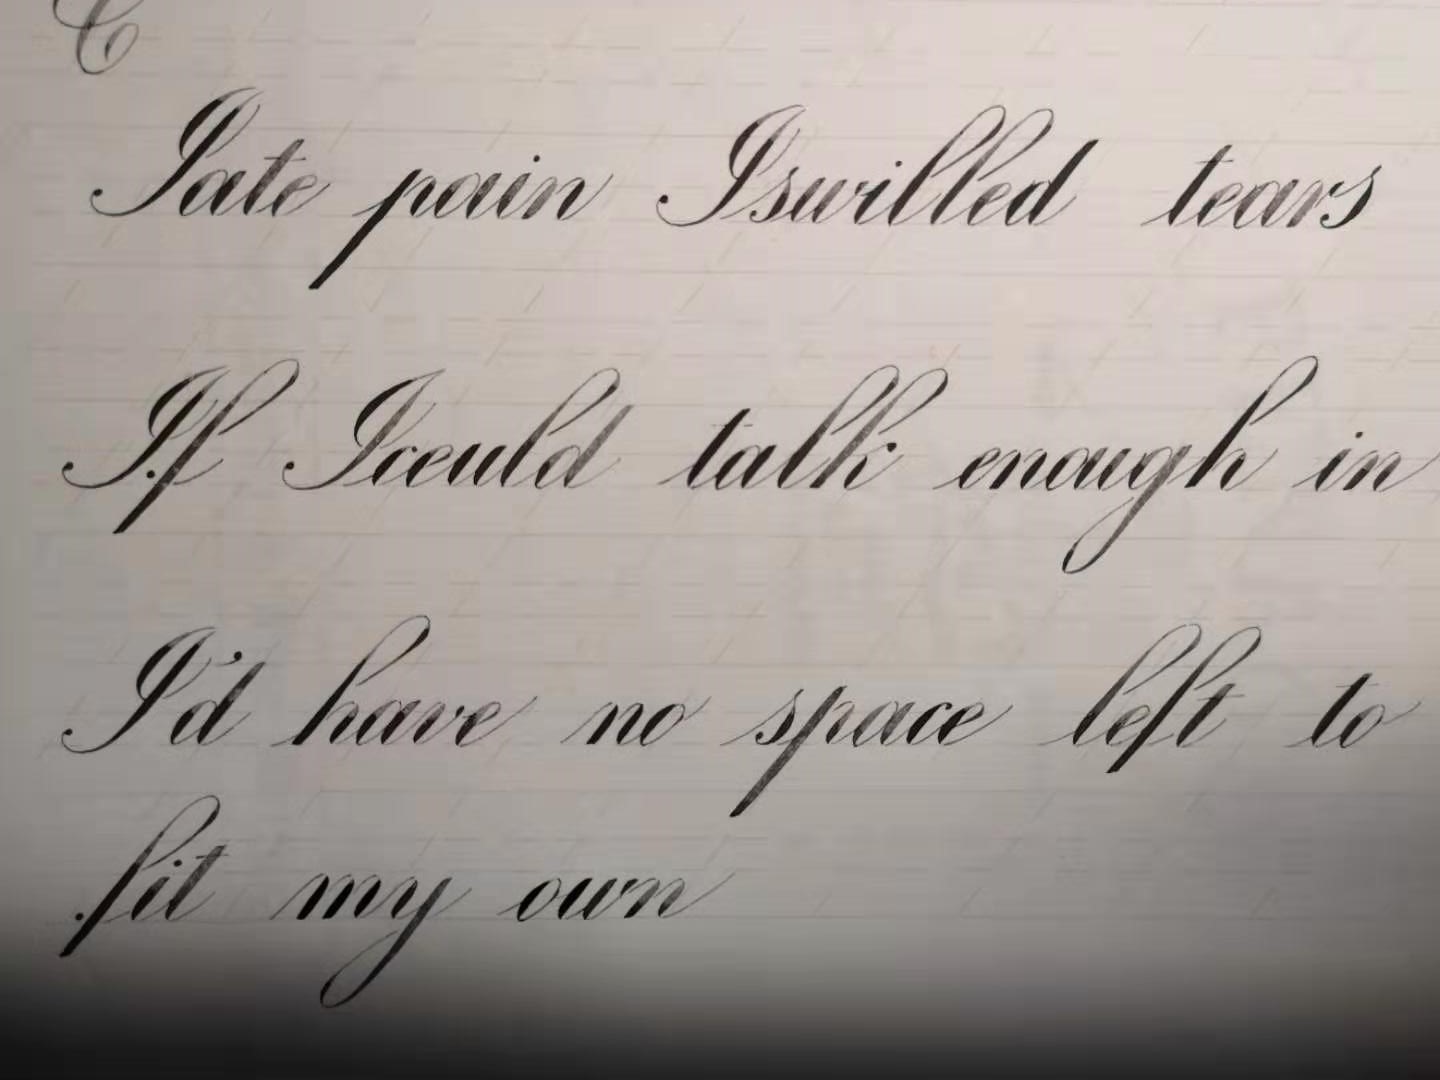 C
I ate pain I swilled tears
If I could talk enough in
I'd have no space left to
fit my own